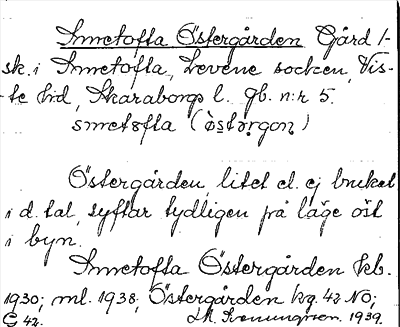 Smetofta Östergården Gård 1-
sk. i Smetofta, Levene socken, Vis-
te hd, Skaraborgs l. gb. n:r 5.
smetofta (östərgon)
Östergården, litet el. ej brukat
i d. tal, syftar tydligen på läge öst
i byn.
Smetofta Östergården kb.
1930; ml. 1938; Östergården kg. 42 NO;
G 42. 1939.